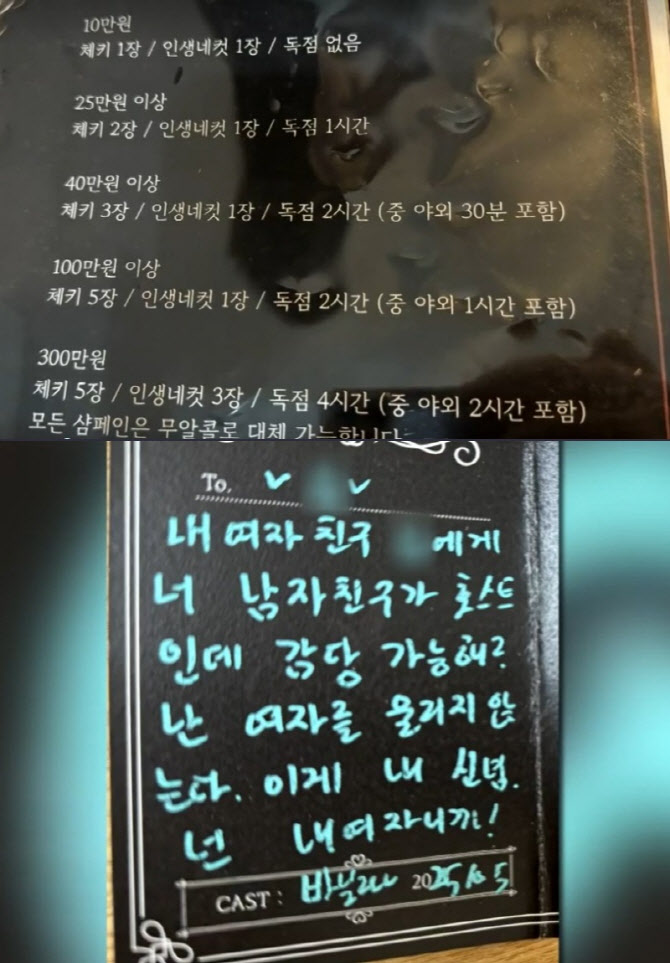 10만원
체키 1장 / 인생네컷 1장 / 독점 없음
25만원 이상
체키 2장 / 인생네컷 1장 / 독점 1시간
40만원 이상
체키 3장 / 인생네컷 1장 / 독점 2시간 (중 야외 30분 포함)
100만원 이상
체키 5장 / 인생네컷 1장 / 독점 2시간 (중 야외 1시간 포함)
300만원
체키 5장 / 인생네컷 3장 / 독점 4시간 (중 야외 2시간 포함)
모든 샴페인은 무알콜로 대체 가능합니다
To.
내 여자친구 에게
너 남자친구가 호스트
인데 감당 가능해?
난 여자를 울리지 않
는다. 이게 내 신념.
넌 내 여자니까!
CAST : 바닐라 2025 10 5